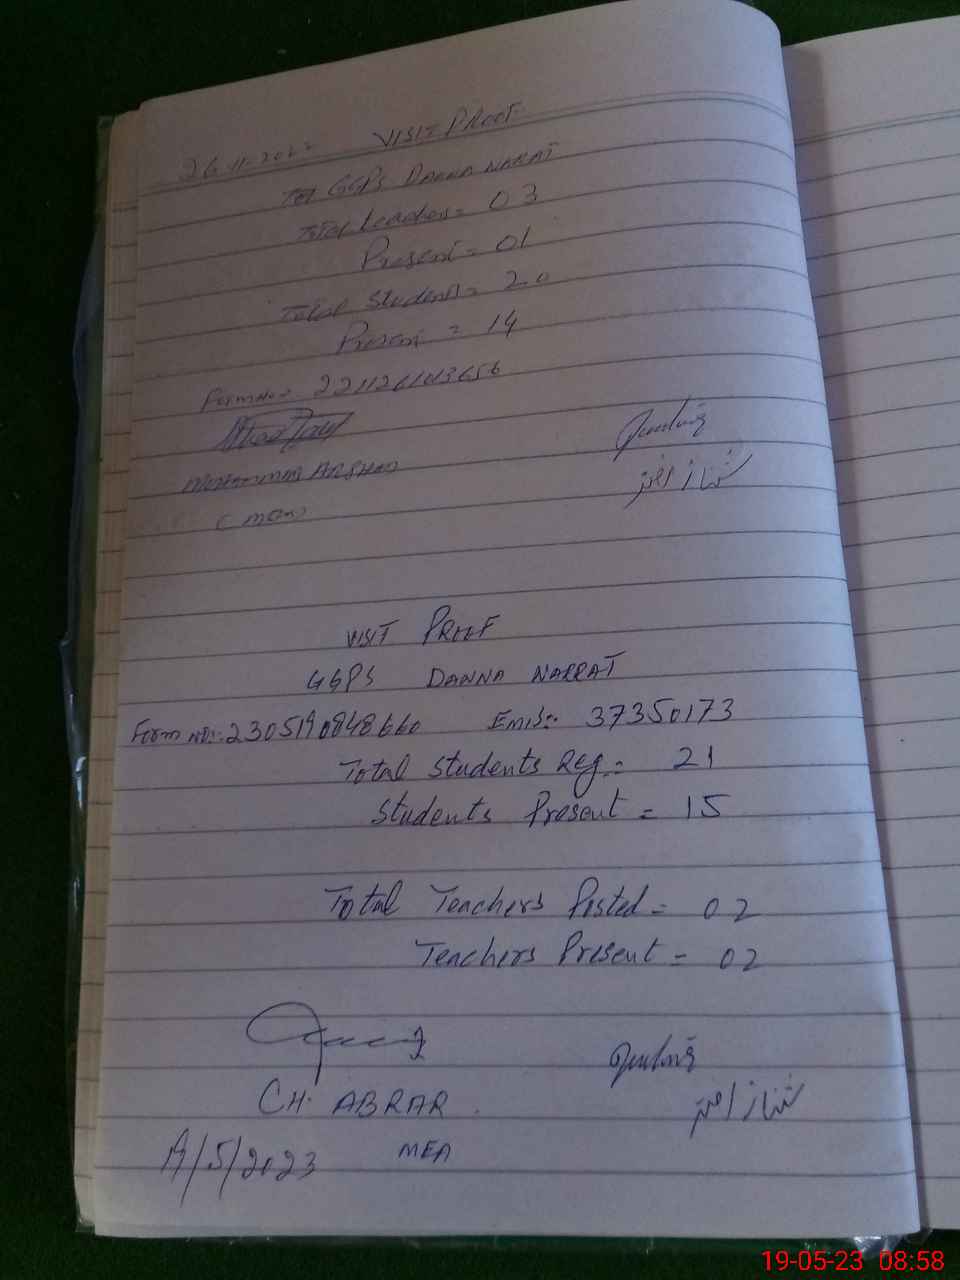 26-11-2022 VISIT PROOF
GGPS DANNA NARAT
Total Teachers = 03
Present = 01
Total Students = 20
Present = 14
Form No:- 221126113656
MUHAMMAD ARSHAD
(MEA)
شناز اختر
VISIT PROOF
GGPS DANNA NARRAT
Form No:- 2305190848660 Emis:- 37350173
Total Students Reg.= 21
Students Present = 15
Total Teachers Posted = 02
Teachers Present = 02
CH. ABRAR
شناز اختر
19/5/2023 MEA
19-05-23 08:58